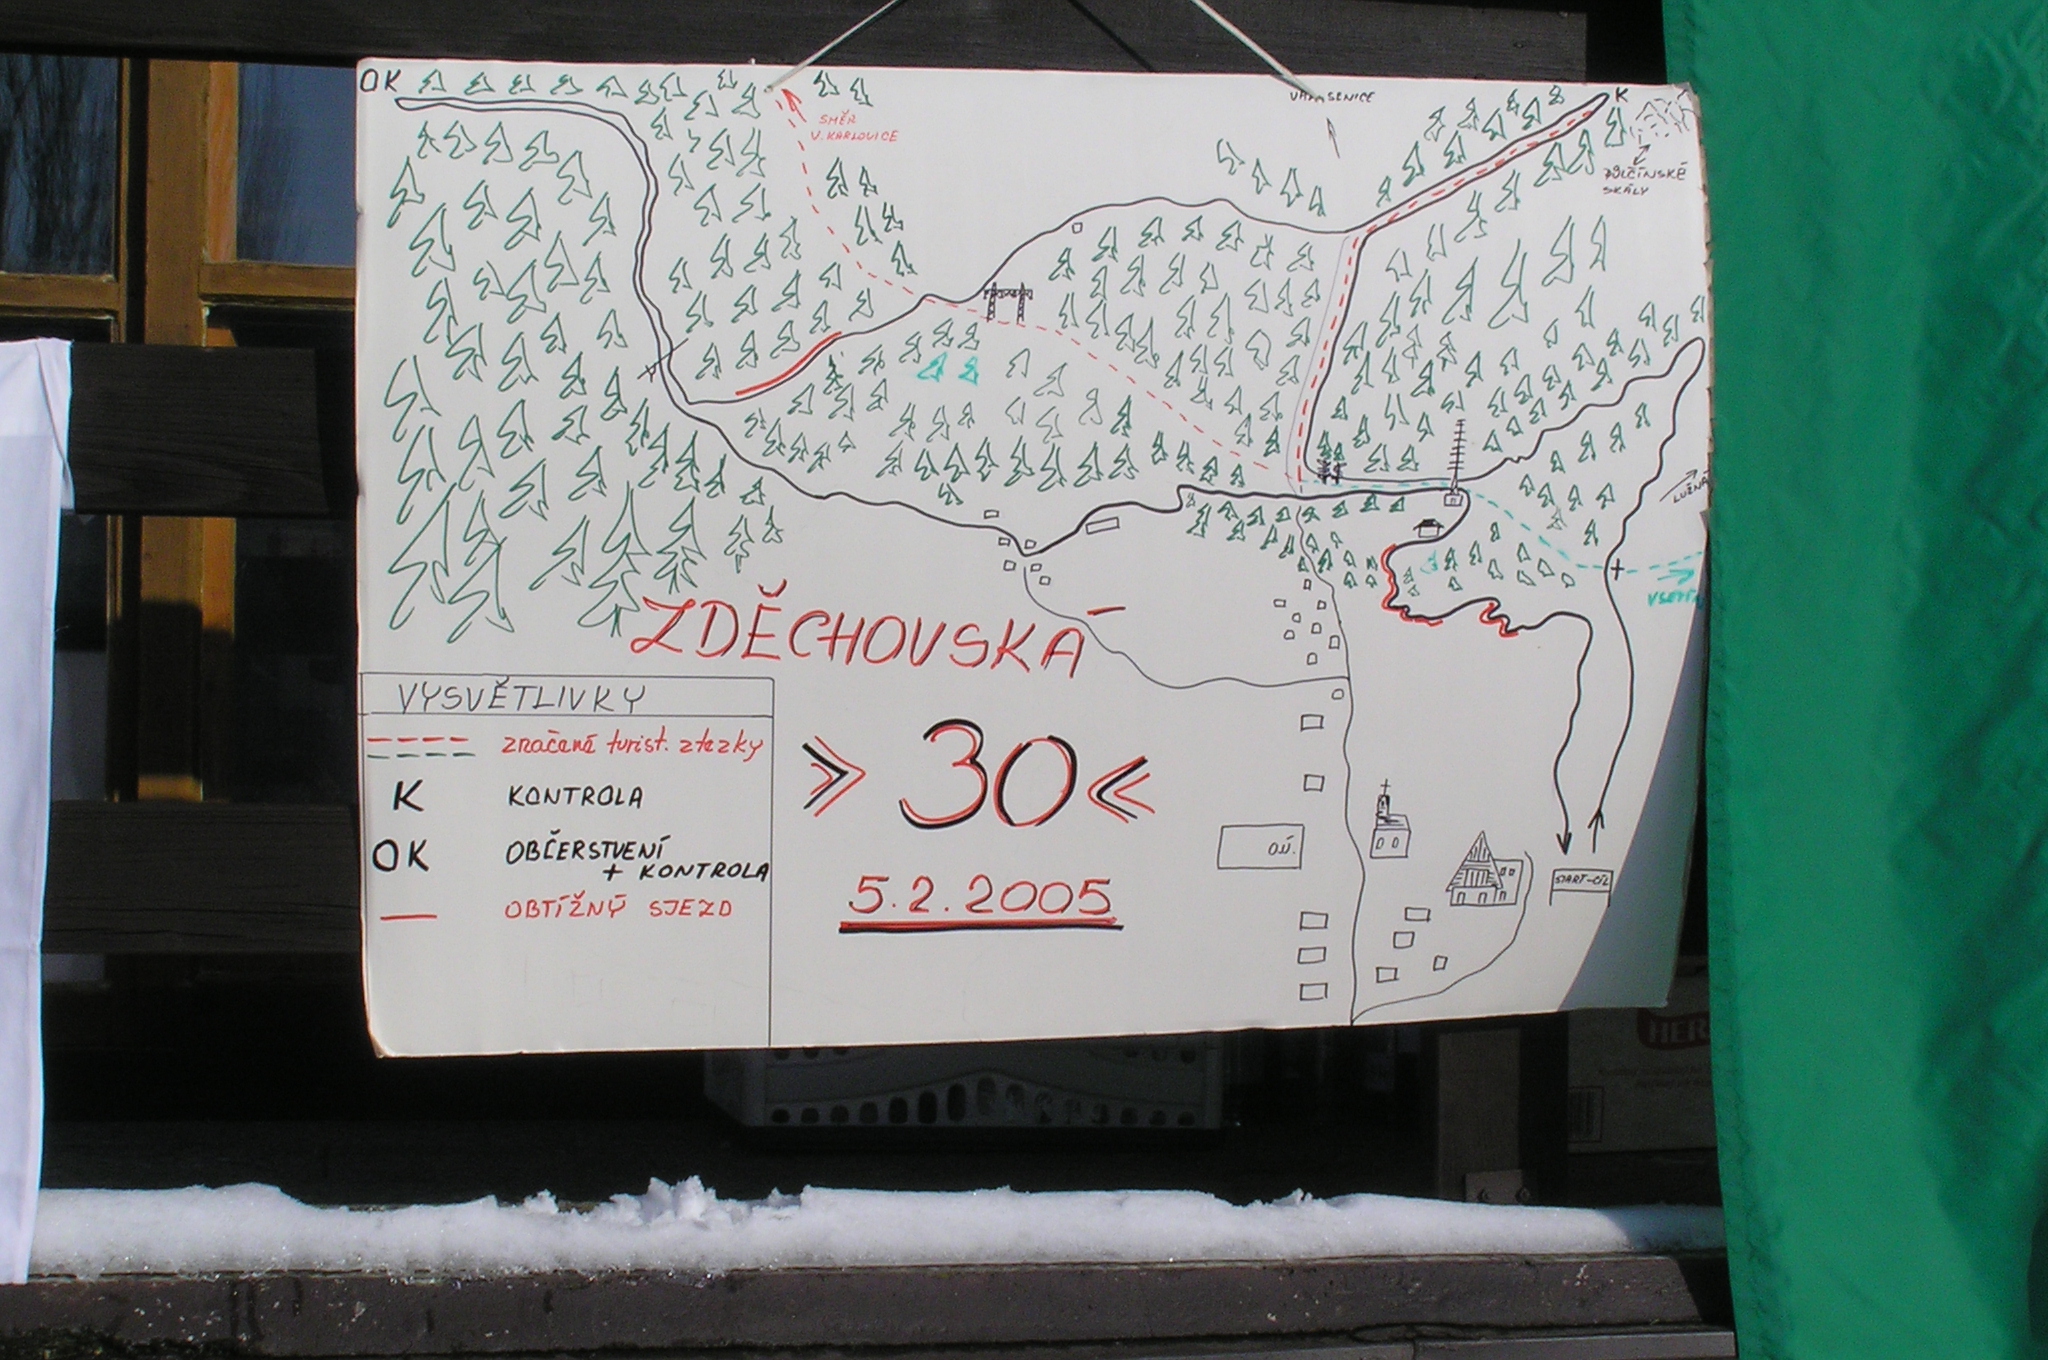 OK
K
SMĚR
V. KARLOVICE
PULČÍNSKÉ
SKÁLY
LUŽNÁ
ZDĚCHOVSKÁ
» 30 «
5.2.2005
VYSVĚTLIVKY
značené turist. stezky
K KONTROLA
OK OBČERSTVENÍ
+ KONTROLA
OBTÍŽNÝ SJEZD
OÚ
START-CÍL
HER